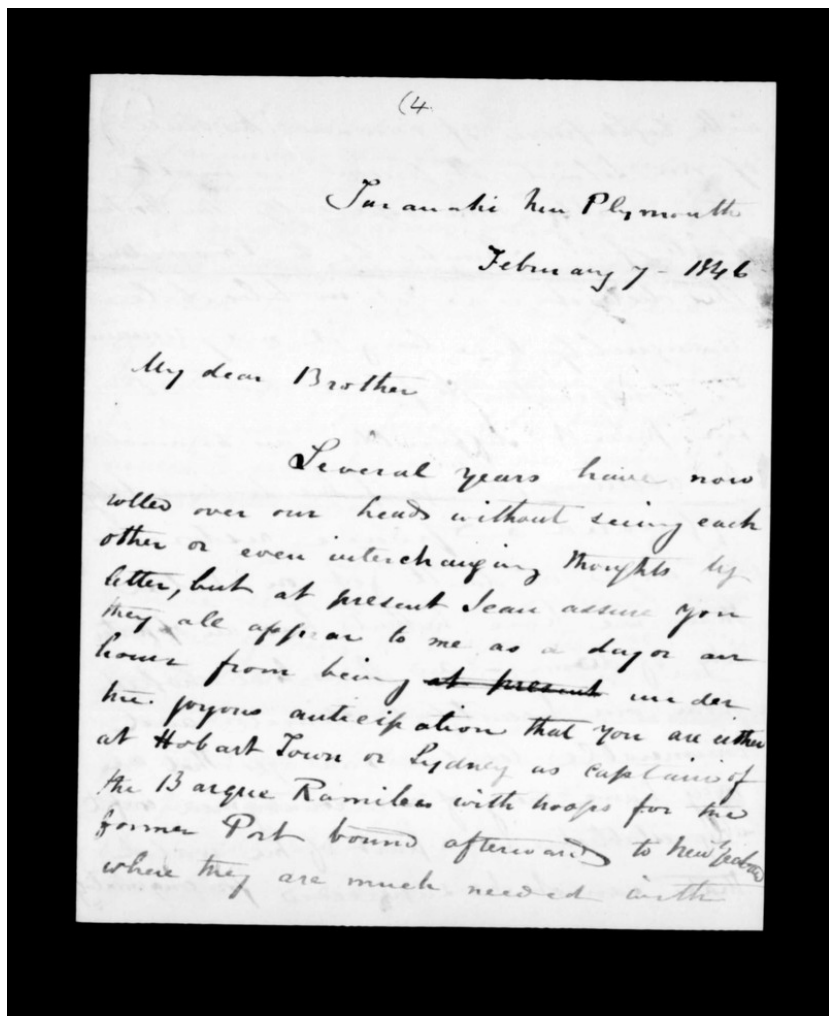 (4
Taranaki New Plymouth
February 7 - 1846
My dear Brother
Several years have now
rolled over our heads without seeing each
other or even interchanging thoughts by
letter, but at present I can assure you
they all appear to me as a day or an
hour from being at present under
the joyous anticipation that you are either
at Hobart Town or Sydney as captain of
the Barque Ramilies with troops for the
former Port bound afterwards to New Zealand
where they are much needed with